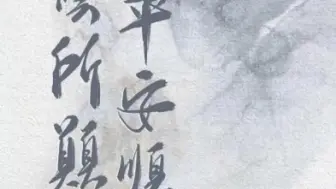 平安順
所願